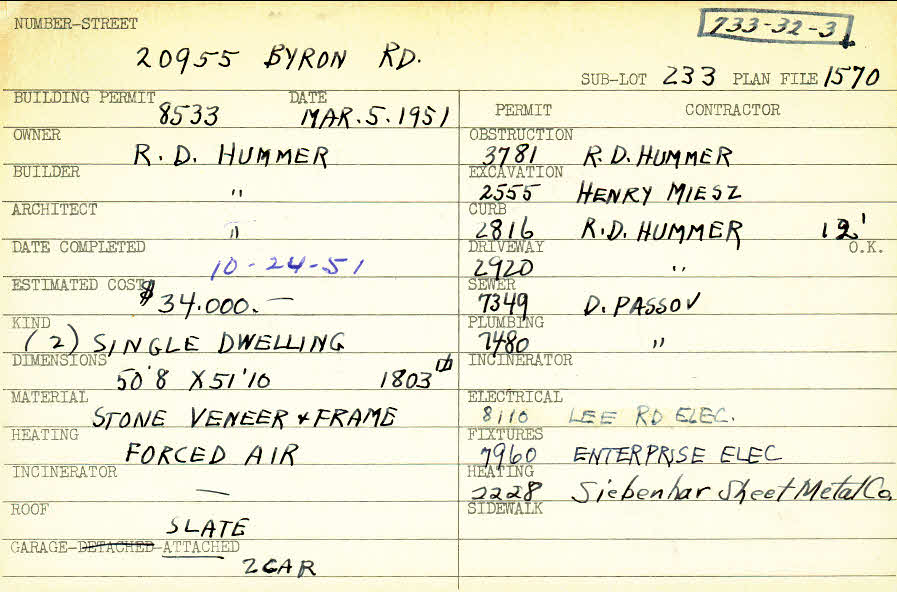 NUMBER-STREET
733-32-3
20955 BYRON RD.
SUB-LOT 233 PLAN FILE 1570
BUILDING PERMIT DATE
8533 MAR. 5. 1951
OWNER
R. D. HUMMER
BUILDER
"
ARCHITECT
"
DATE COMPLETED
10-24-51
ESTIMATED COST
$34.000.—
KIND
(2) SINGLE DWELLING
DIMENSIONS
50'8 X 51'10 1803
MATERIAL
STONE VENEER & FRAME
HEATING
FORCED AIR
INCINERATOR
—
ROOF
SLATE
GARAGE-DETACHED-ATTACHED
2 CAR
PERMIT CONTRACTOR
OBSTRUCTION
3781 R. D. HUMMER
EXCAVATION
2555 HENRY MIESZ
CURB
2816 R. D. HUMMER 12'
DRIVEWAY O.K.
2920 "
SEWER
7349 D. PASSOV
PLUMBING
7480 "
INCINERATOR
ELECTRICAL
8110 LEE RD ELEC.
FIXTURES
7960 ENTERPRISE ELEC
HEATING
2228 Siebenhar Sheet Metal Co,
SIDEWALK